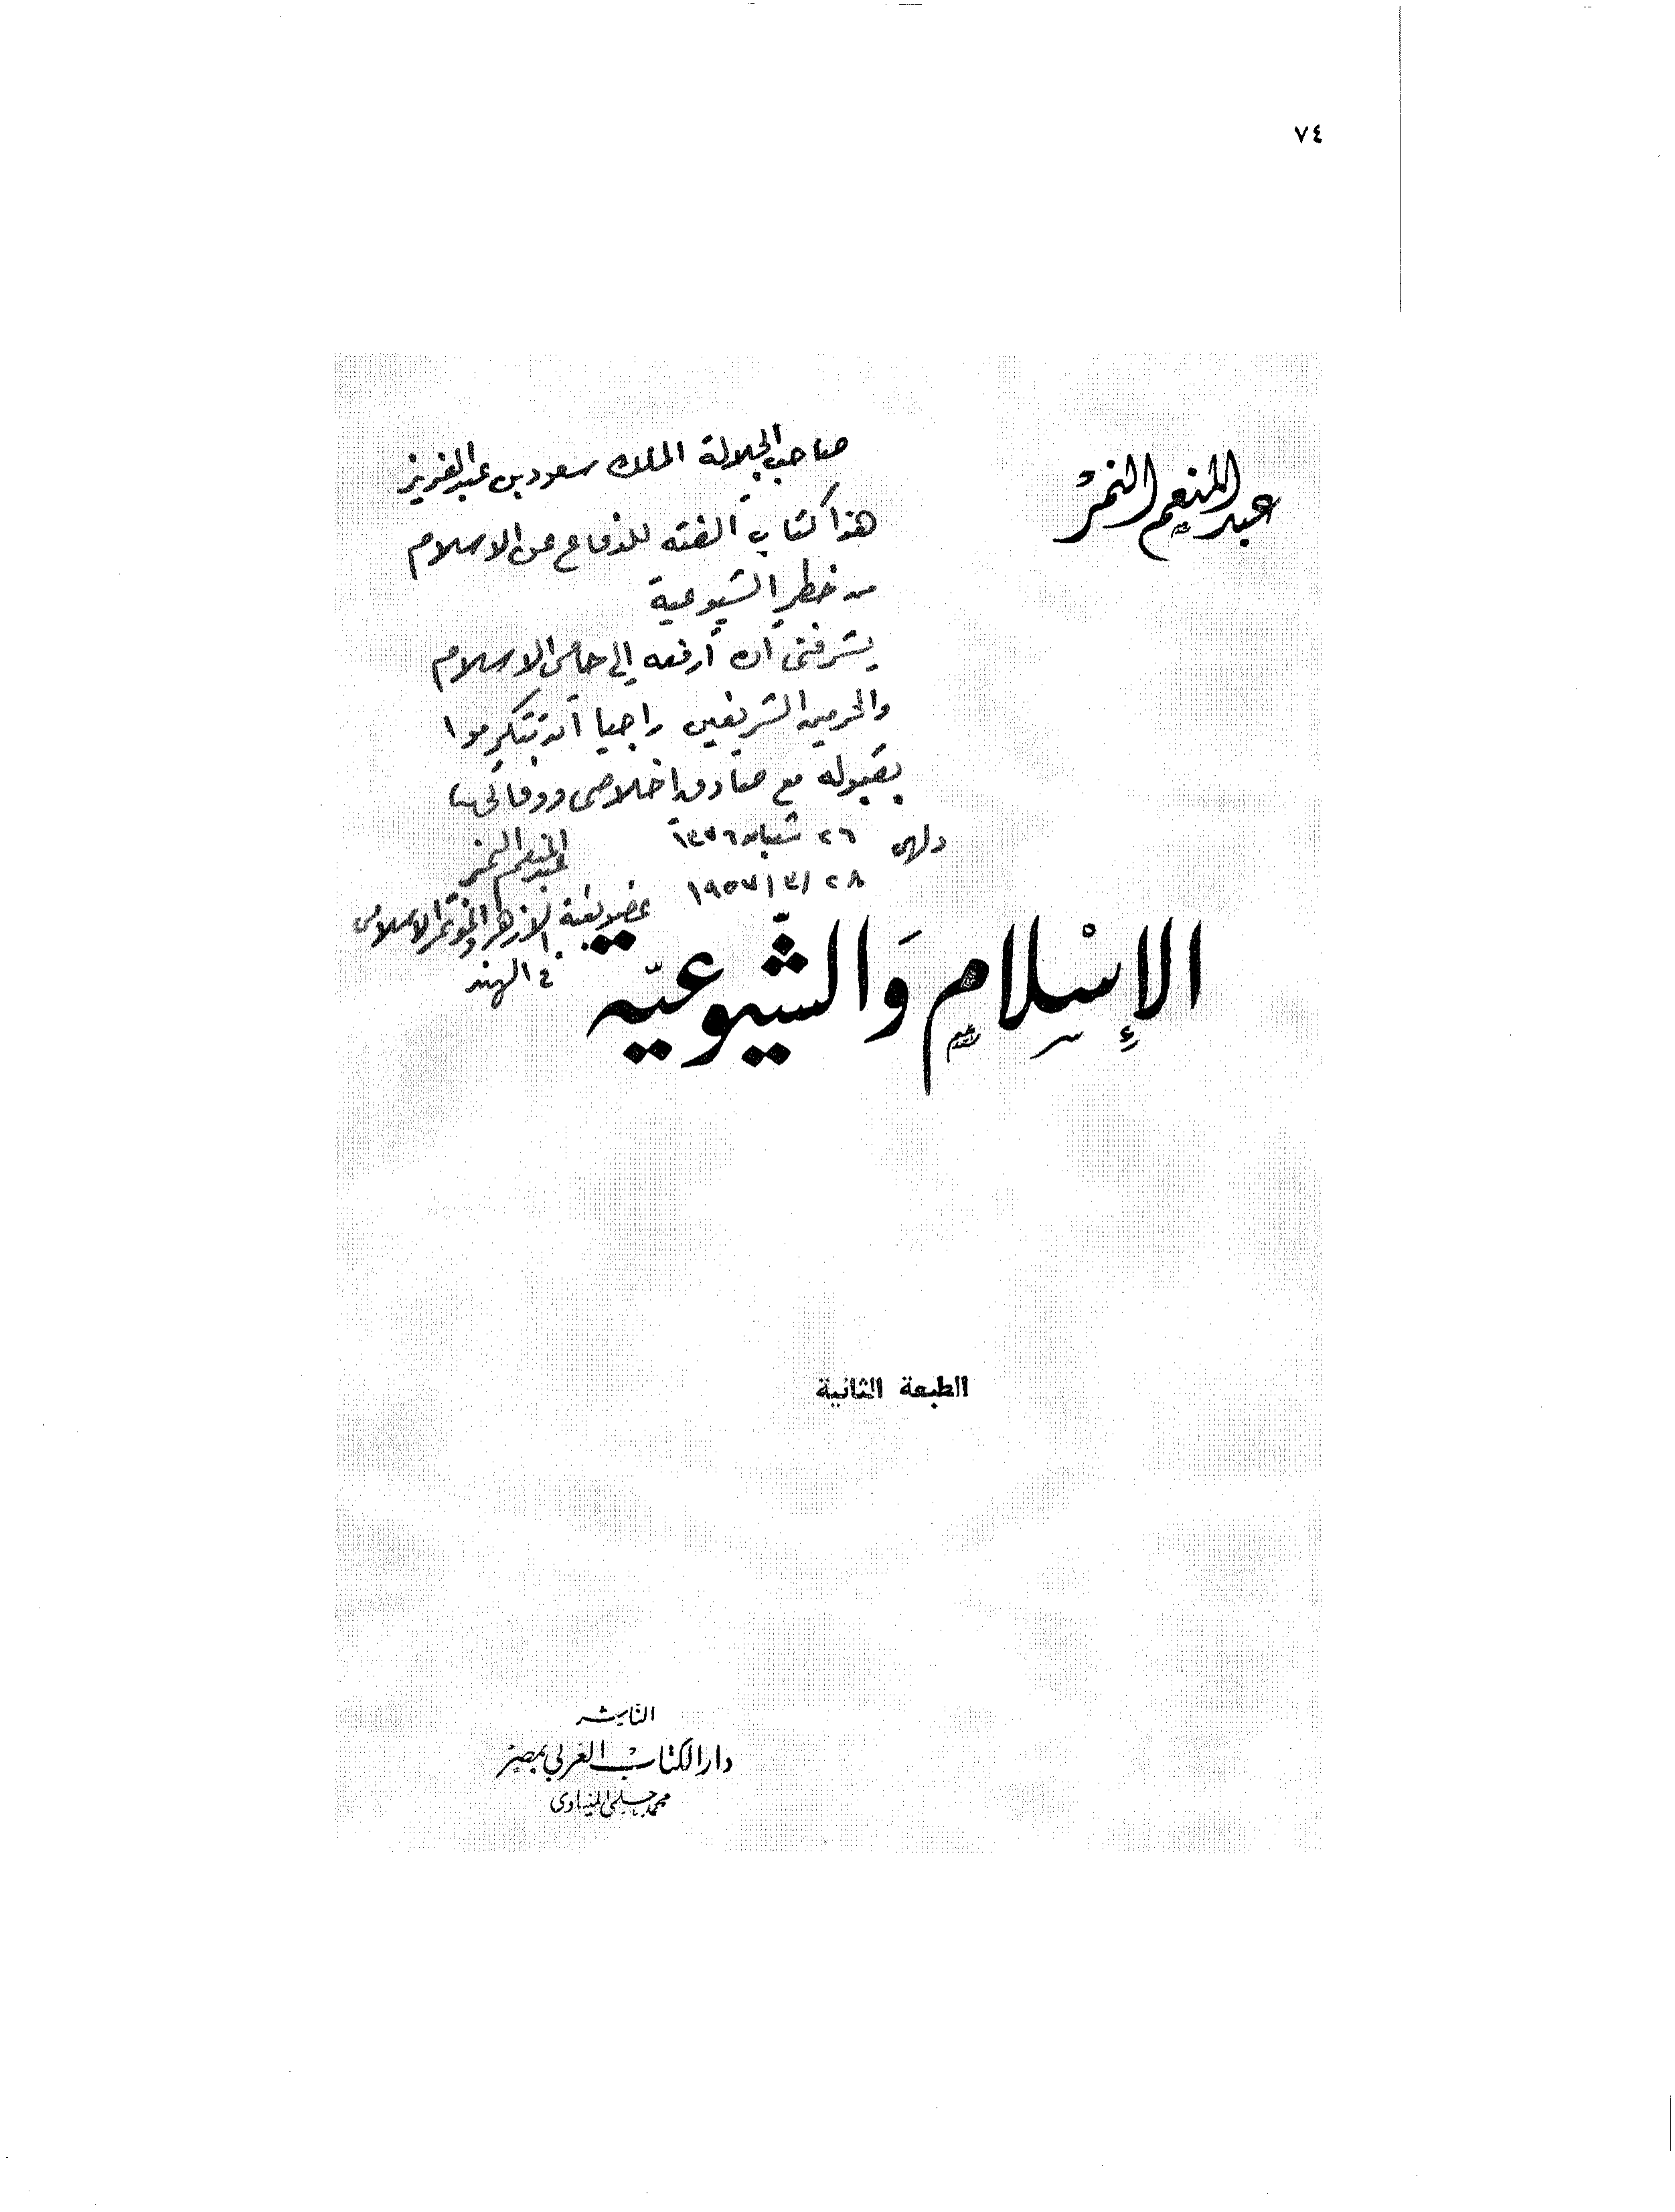 ٧٤
عبد المنعم النمر
صاحب الجلالة الملك سعود بن عبد العزيز
هذا كتاب ألفته للدفاع عن الاسلام
من خطر الشيوعية
يشرفني أن أرفعه إلى حامى الاسلام
والحرمين الشريفين راجيا أن تتكرموا
بقبوله مع صادق اخلاصى ووفائى
دلهى ٢٦ شعبان ١٣٧٦
٢٨ / ٣ / ١٩٥٧
عبد المنعم النمر
عضو بعثة الأزهر والمؤتمر الاسلامى
فى الهند
الإسلام والشيوعية
الطبعة الثانية
الناشر
دار الكتاب العربي بمصر
محمد حلمى المنياوى